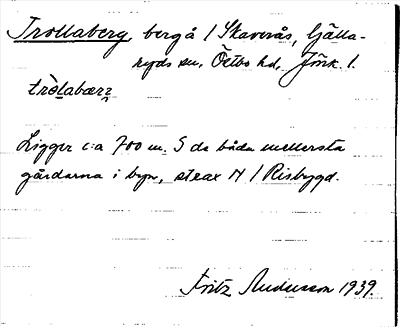 Trollaberg, berg å / Skaverås, Gälla-
ryds sn, Östbo hd, Jönk. l.
Ligger c:a 700 m. S de båda mellersta
gårdarna i byn, strax N / Risbygd.
Fritz Andersson 1939.